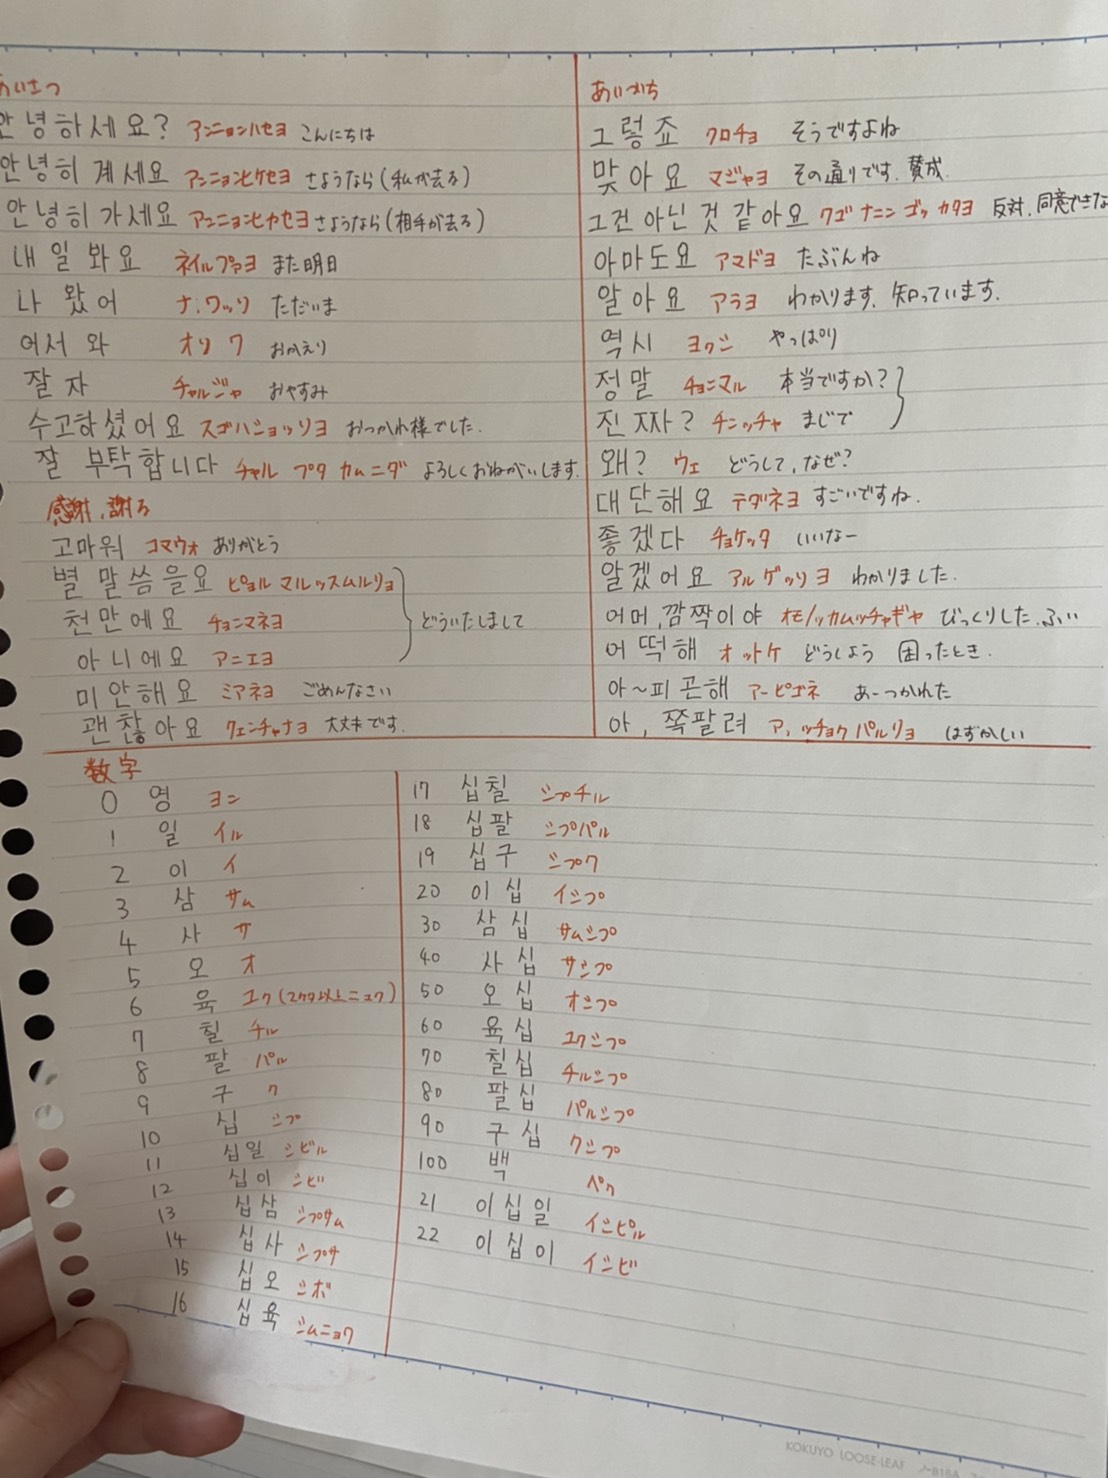 あいさつ
안녕하세요? アンニョンハセヨ こんにちは
안녕히 계세요 アンニョンヒケセヨ さようなら(私が去る)
안녕히 가세요 アンニョンヒカセヨ さようなら(相手が去る)
내일 봐요 ネイルプァヨ また明日
나 왔어 ナ.ワッソ ただいま
어서 와 オソ ワ おかえり
잘자 チャルジャ おやすみ
수고하셨어요 スゴハショッソヨ おつかれ様でした.
잘 부탁합니다 チャル プタ カムニダ よろしくおねがいします.
感謝、謝る
고마워 コマウォ ありがとう
별 말씀을요 ピョル マルッスムルリョ
천만에요 チョンマネヨ どういたしまして
아니에요 アニエヨ
미안해요 ミアネヨ ごめんなさい
괜찮아요 クェンチャナヨ 大丈夫です.
あいづち
그렇죠 クロチョ そうですよね
맞아요 マジャヨ その通りです、賛成
그건 아닌 것 같아요 クゴ ナニン ゴッ カタヨ 反対、同意できな
아마도요 アマドヨ たぶんね
알아요 アラヨ わかります、知っています.
역시 ヨクシ やっぱり
정말 チョンマル 本当ですか?
진짜? チンッチャ まじで
왜? ウェ どうして、なぜ?
대단해요 テダネヨ すごいですね.
좋겠다 チョケッタ いいなー
알겠어요 アルゲッソヨ わかりました.
어머,깜짝이야 オモ/ッカムッチャギヤ びっくりした.ふい
어떡해 オットケ どうしよう 困ったとき.
아~피곤해 アーピゴネ あーつかれた
아, 쪽팔려 ア、ッチョクパルリョ はずかしい
数字
0 영 ヨン
1 일 イル
2 이 イ
3 삼 サム
4 사 サ
5 오 オ
6 육 ユク(2ケタ以上ニュク)
7 칠 チル
8 팔 パル
9 구 ク
10 십 シプ
11 십일 シビル
12 십이 シビ
13 십삼 シプサム
14 십사 シプサ
15 십오 シボ
16 십육 シムニョク
17 십칠 シプチル
18 십팔 シプパル
19 십구 シプク
20 이십 イシプ
30 삼십 サムシプ
40 사십 サシプ
50 오십 オシプ
60 육십 ユクシプ
70 칠십 チルシプ
80 팔십 パルシプ
90 구십 クシプ
100 백 ペク
21 이십일 イシピル
22 이십이 イシビ
KOKUYO LOOSE-LEAF